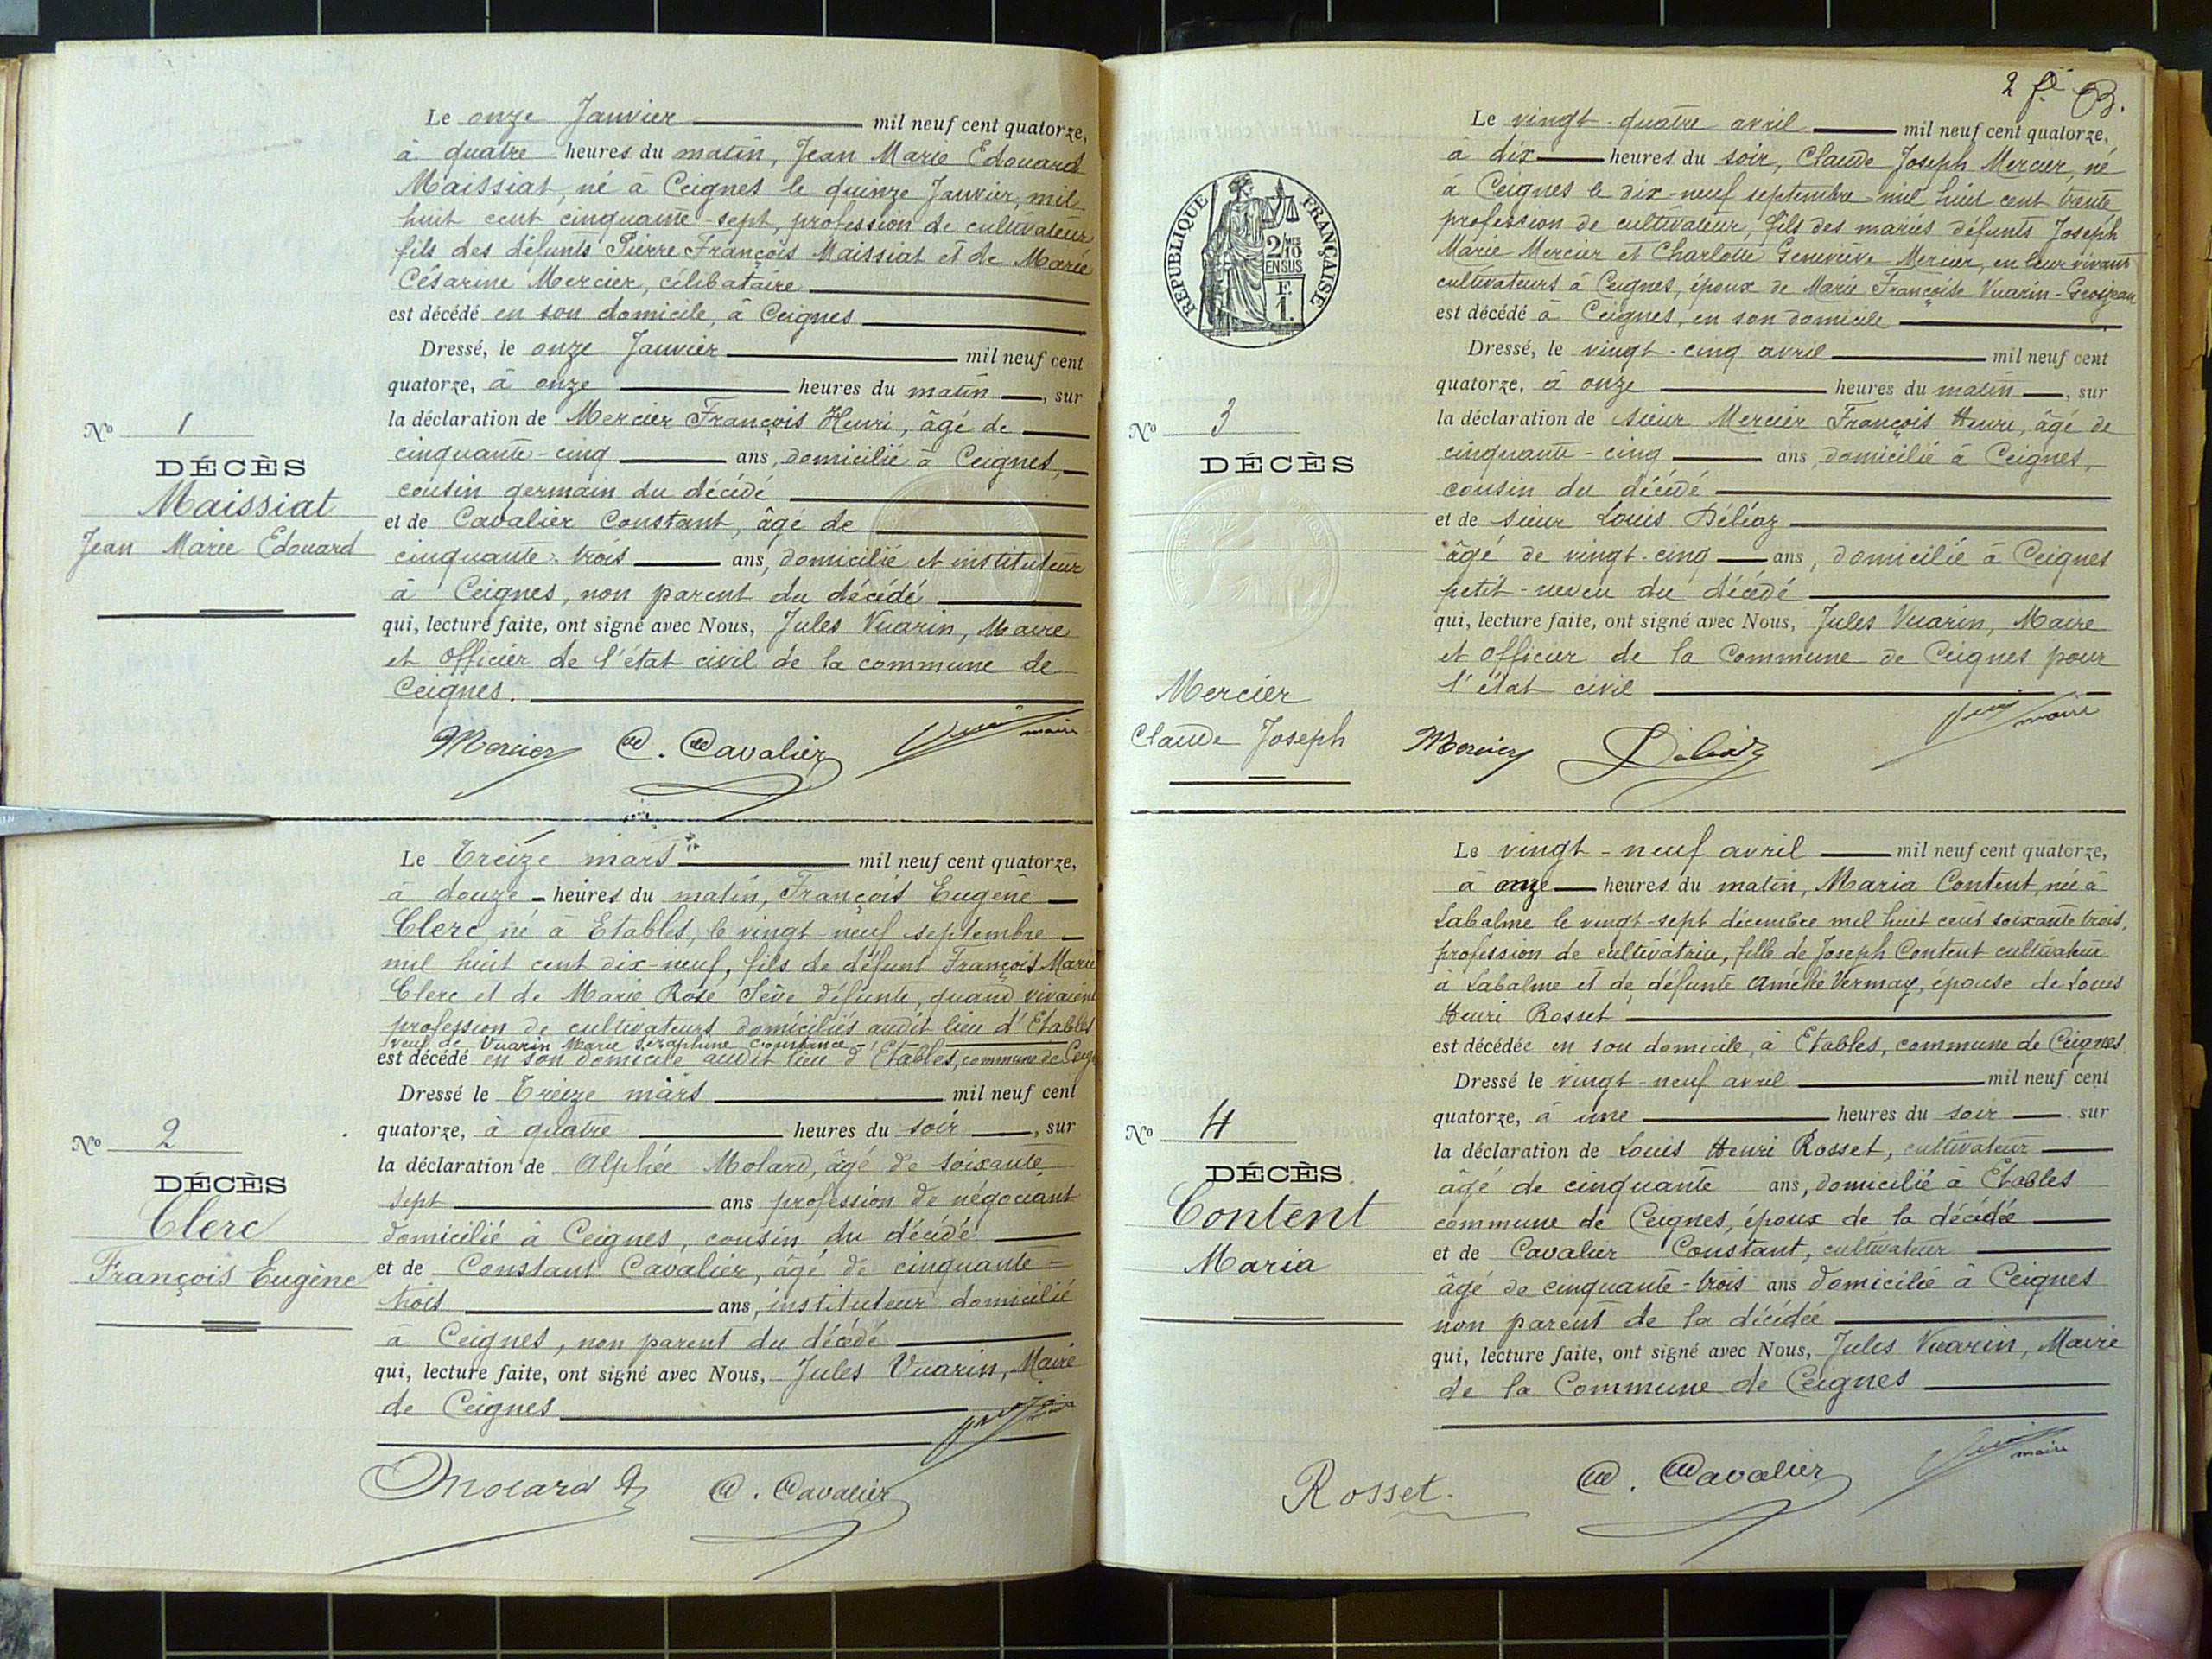 Le onze Janvier mil neuf cent quatorze,
à quatre heures du matin, Jean Marie Edouard
Maissiat, né à Ceignes le quinze Janvier, mil
huit cent cinquante-sept, profession de cultivateur
fils des défunts Pierre François Maissiat et de Marie
Césarine Mercier, célibataire
est décédé en son domicile, à Ceignes
Dressé, le onze Janvier mil neuf cent
quatorze, à onze heures du matin, sur
la déclaration de Mercier François Henri, âgé de
cinquante-cinq ans, domicilié à Ceignes,
cousin germain du décédé
et de Cavalier Constant, âgé de
cinquante-trois ans, domicilié et instituteur
à Ceignes, non parent du décédé
qui, lecture faite, ont signé avec Nous, Jules Vuarin, Maire
et officier de l'état civil de la commune de
Ceignes.
No 1
DÉCÈS
Maissiat
Jean Marie Edouard
Mercier C. Cavalier maire
Le Treize mars mil neuf cent quatorze,
à douze heures du matin, François Eugène
Clerc né à Etables, le vingt-neuf septembre
mil huit cent dix-neuf, fils de défunt François Marie
Clerc et de Marie Rose Sève défunte, quand vivaient
profession de cultivateurs domiciliés audit lieu d'Etables
veuf de Vuarin Marie Séraphine Constance
est décédé en son domicile audit lieu d'Etables, commune de Ceig
Dressé le Treize mars mil neuf cent
quatorze, à quatre heures du soir, sur
la déclaration de Alphée Molard, âgé de soixante
sept ans profession de négociant
domicilié à Ceignes, cousin du décédé
et de Constant Cavalier, âgé de cinquante=
trois ans, instituteur domicilié
à Ceignes, non parent du décédé
qui, lecture faite, ont signé avec Nous, Jules Vuarin, Maire
de Ceignes
No 2
DÉCÈS
Clerc
François Eugène
Molard A C. Cavalier
2 f.
REPUBLIQUE FRANÇAISE
2/10 MES
EN SUS
F.
1.
Le vingt-quatre avril mil neuf cent quatorze,
à dix heures du soir, Claude Joseph Mercier, né
à Ceignes le dix-neuf septembre mil huit cent trente
profession de cultivateur, fils des mariés défunts Joseph
Marie Mercier et Charlotte Geneviève Mercier, en leur vivant
cultivateurs à Ceignes, époux de Marie Françoise Vuarin-Grosjean
est décédé à Ceignes, en son domicile
Dressé, le vingt-cinq avril mil neuf cent
quatorze, à onze heures du matin, sur
la déclaration de sieur Mercier François Henri, âgé de
cinquante-cinq ans, domicilié à Ceignes,
cousin du décédé
et de sieur Louis Déléaz
âgé de vingt-cinq ans, domicilié à Ceignes
petit-neveu du décédé
qui, lecture faite, ont signé avec Nous, Jules Vuarin, Maire
et officier de la Commune de Ceignes pour
l'état civil
No 3
DÉCÈS
Mercier
Claude Joseph
Mercier Déléaz maire
Le vingt-neuf avril mil neuf cent quatorze,
à onze heures du matin, Maria Content, née à
Labalme le vingt-sept décembre mil huit cent soixante trois,
profession de cultivatrice, fille de Joseph Content cultivateur
à Labalme et de défunte Amélie Vermay, épouse de Louis
Henri Rosset
est décédée en son domicile, à Etables, commune de Ceignes
Dressé le vingt-neuf avril mil neuf cent
quatorze, à une heures du soir, sur
la déclaration de Louis Henri Rosset, cultivateur
âgé de cinquante ans, domicilié à Etables
commune de Ceignes, époux de la décédée
et de Cavalier Constant, cultivateur
âgé de cinquante-trois ans domicilié à Ceignes
non parent de la décédée
qui, lecture faite, ont signé avec Nous, Jules Vuarin, Maire
de la Commune de Ceignes
No 4
DÉCÈS.
Content
Maria
Rosset. C. Cavalier maire